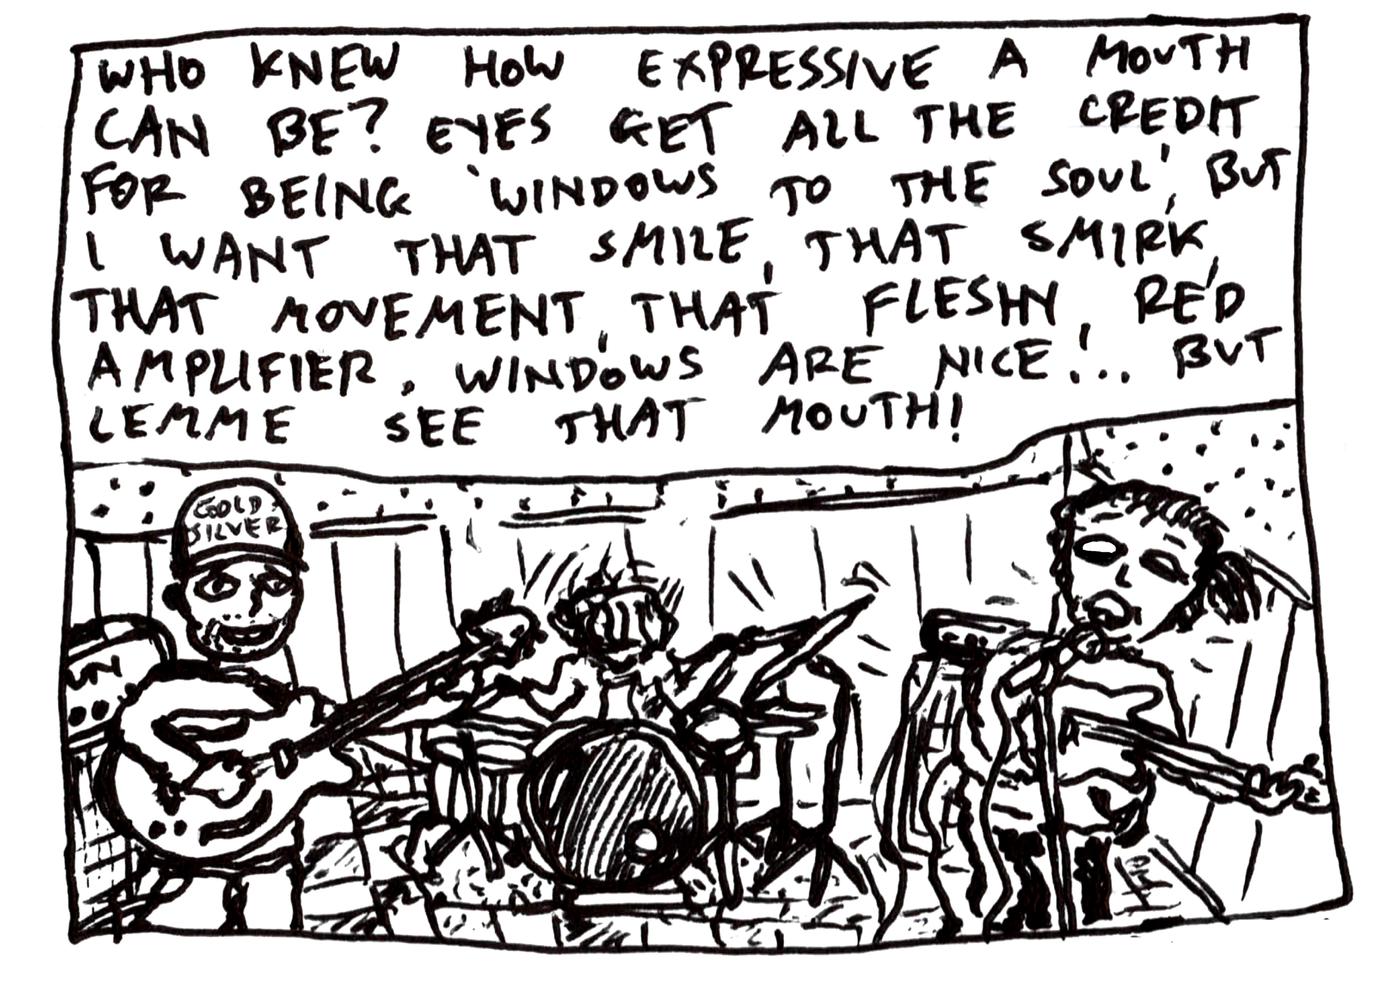 WHO KNEW HOW EXPRESSIVE A MOUTH
CAN BE? EYES GET ALL THE CREDIT
FOR BEING 'WINDOWS TO THE SOUL', BUT
I WANT THAT SMILE, THAT SMIRK,
THAT MOVEMENT, THAT FLESHY, RED
AMPLIFIER. WINDOWS ARE NICE!.. BUT
LEMME SEE THAT MOUTH!
GOLD
SILVER